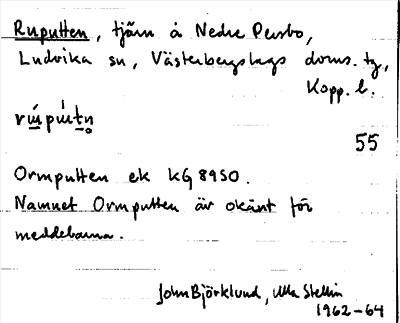 Ruputten, tjärn å Nedre Persbo,
Ludvika sn, Västerbergslags doms. tg,
Kopp. l.
55
Ormputten ek KG 8950.
Namnet Ormputten är okänt för
meddelarna.
John Björklund, Ulla Stellin
1962-64